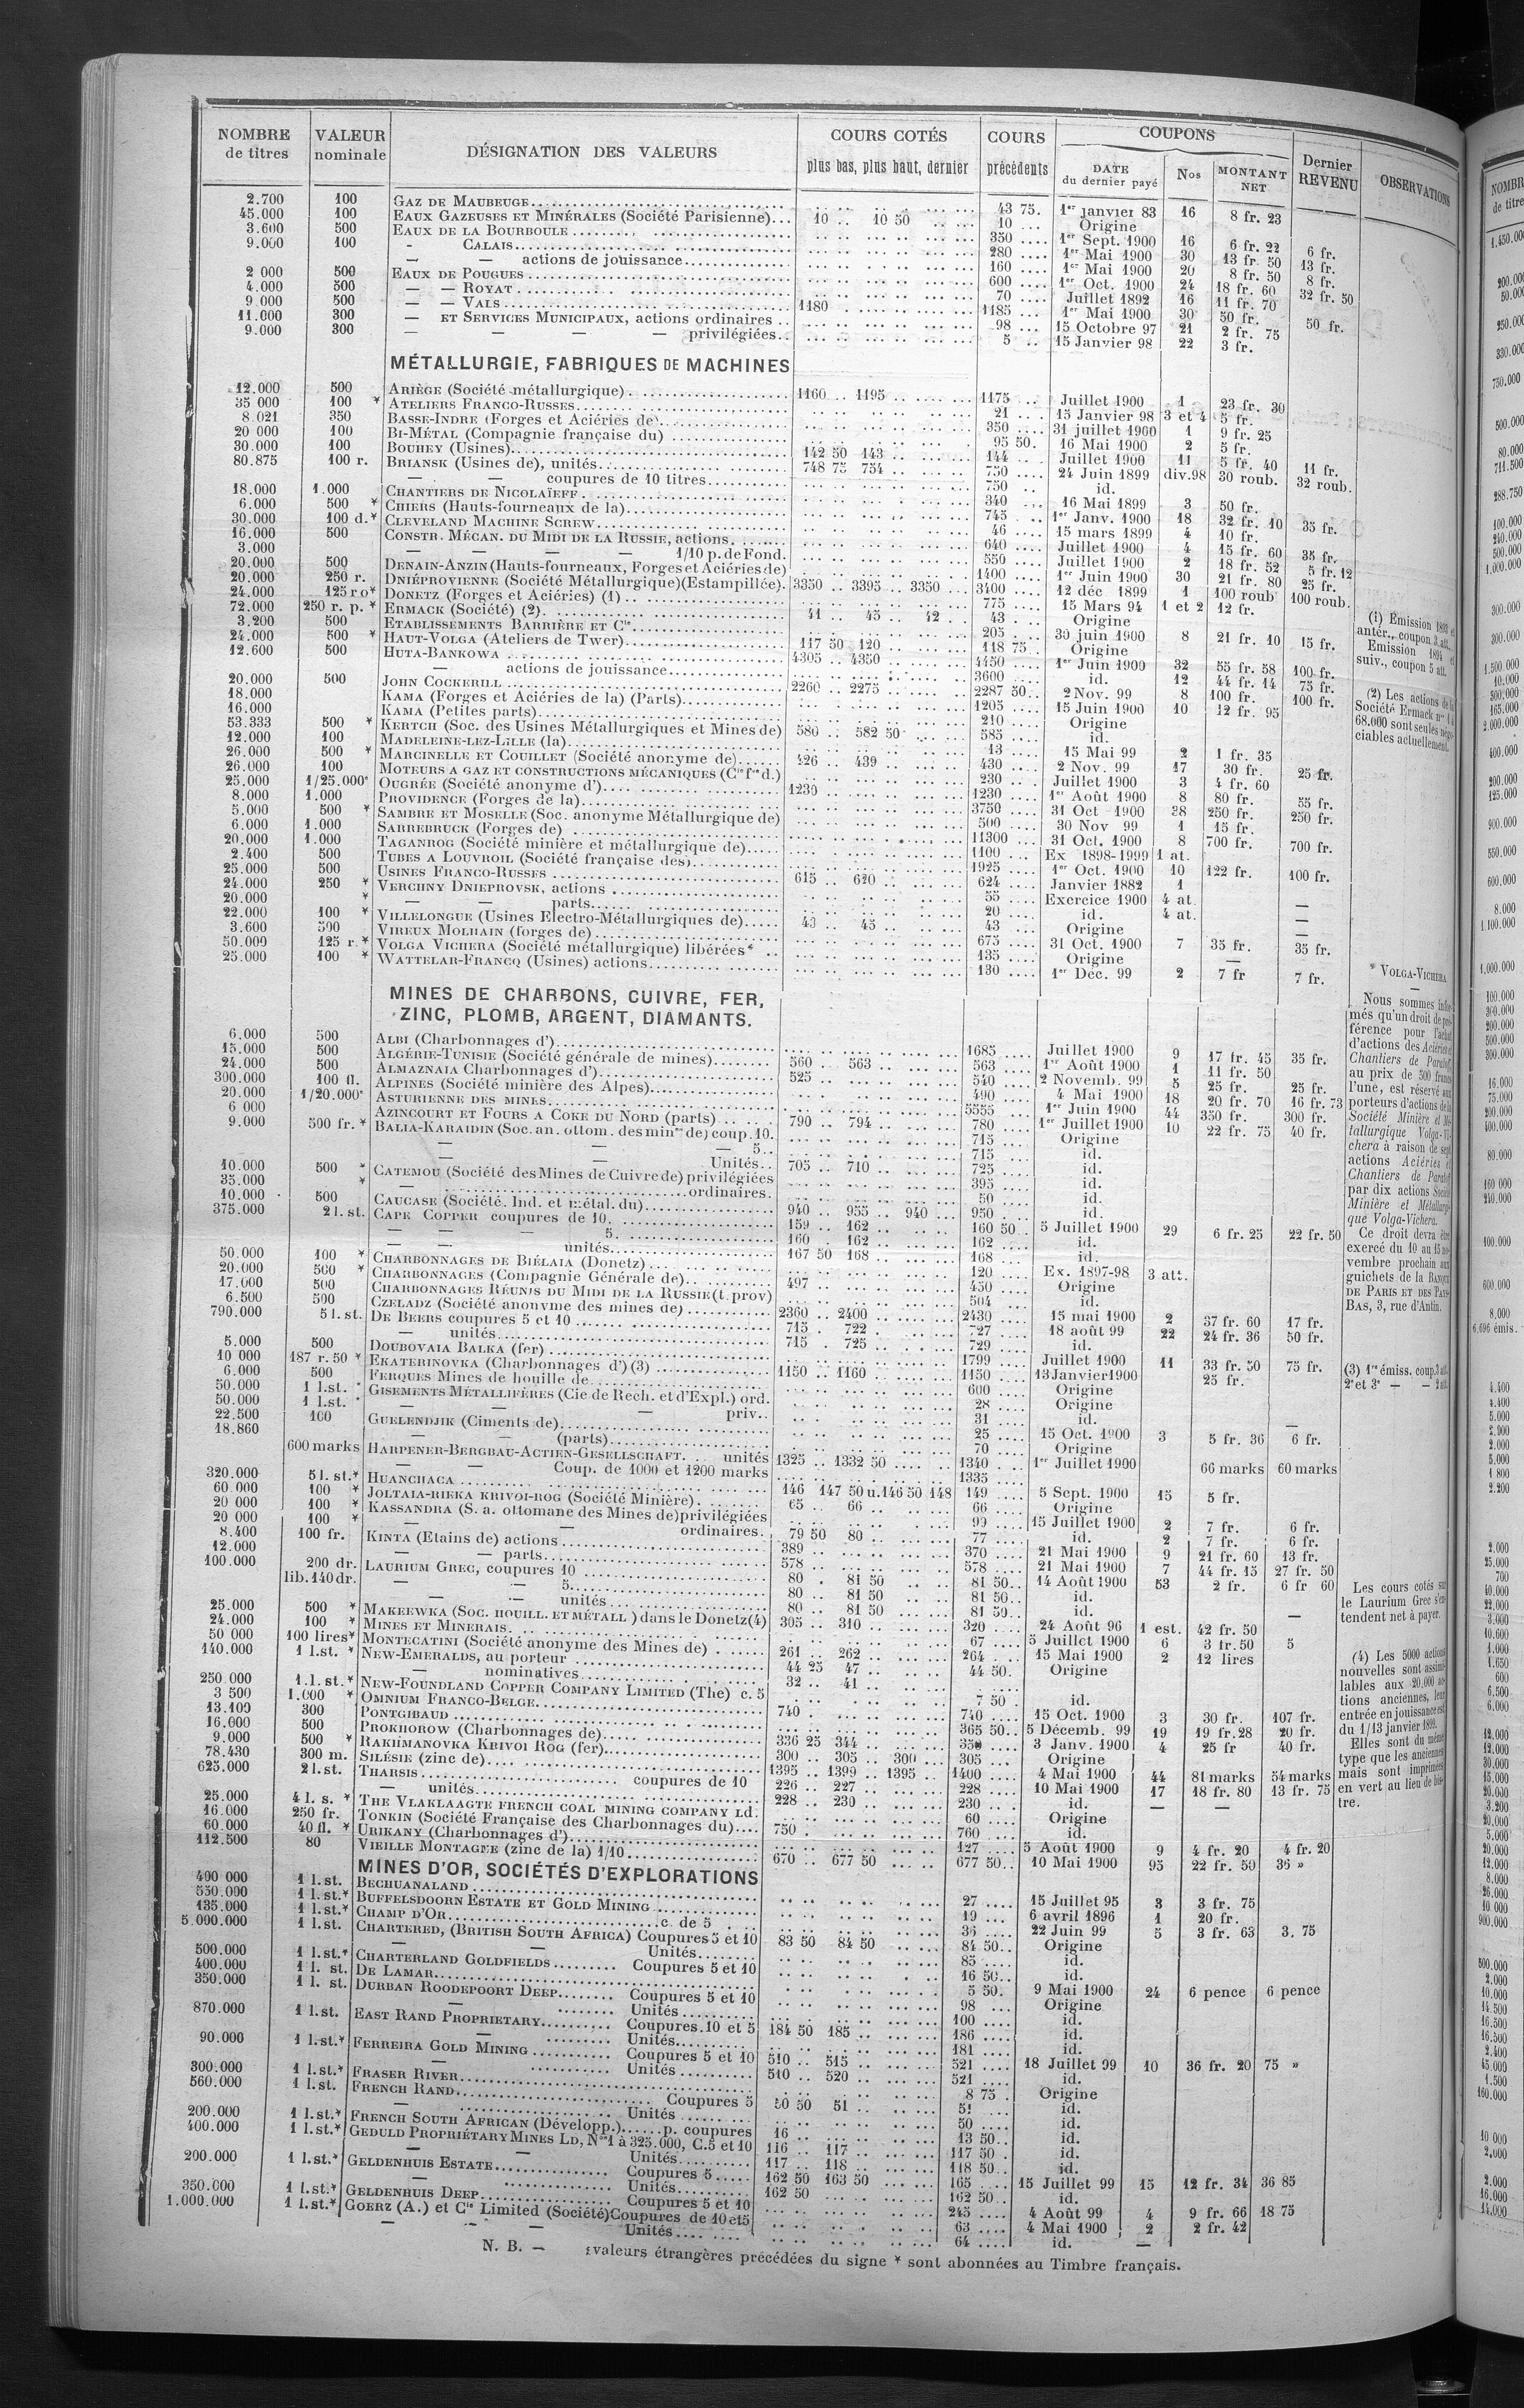 NOMBRE de titres | VALEUR nominale | DÉSIGNATION DES VALEURS | COURS COTÉS plus bas, plus haut, dernier | COURS précédents | COUPONS DATE du dernier payé | Nos | MONTANT NET | Dernier REVENU | OBSERVATIONS
2.700 100 GAZ DE MAUBEUGE 43 75. 1er janvier 83 16 8 fr. 23
45.000 100 EAUX GAZEUSES ET MINÉRALES (Société Parisienne) 10 .. 10 50 10 ... Origine
3.600 500 EAUX DE LA BOURBOULE 350 .... 1er Sept. 1900 16 6 fr. 22 6 fr.
9.000 100 - CALAIS 280 .... 1er Mai 1900 30 13 fr. 50 13 fr.
— — actions de jouissance 160 .... 1er Mai 1900 20 8 fr. 50 8 fr.
2 000 500 EAUX DE POUGUES 600 .... 1er Oct. 1900 24 18 fr. 60 32 fr. 50
4.000 500 — — ROYAT 70 .... Juillet 1892 16 11 fr. 70
9 000 500 — — VALS 1180 1185 ... 1er Mai 1900 30 50 fr. 50 fr.
11.000 300 — ET SERVICES MUNICIPAUX, actions ordinaires 98 ... 15 Octobre 97 21 2 fr. 75
9.000 300 — — — — privilégiées 5 .. 15 Janvier 98 22 3 fr.
MÉTALLURGIE, FABRIQUES DE MACHINES
12.000 500 ARIÈGE (Société métallurgique) 1160 .. 1195 1175 .. Juillet 1900 1 23 fr. 30
35 000 100 * ATELIERS FRANCO-RUSSES 21 .... 15 Janvier 98 3 et 4 5 fr.
8.021 350 BASSE-INDRE (Forges et Aciéries de) 350 .... 31 juillet 1900 1 9 fr. 25
20 000 100 BI-MÉTAL (Compagnie française du) 95 50. 16 Mai 1900 2 5 fr.
30.000 100 BOUHEY (Usines) 142 50 143 144 Juillet 1900 11 5 fr. 40 11 fr.
80.875 100 r. BRIANSK (Usines de), unités 748 75 754 750 .... 24 Juin 1899 div.98 30 roub. 32 roub.
— — coupures de 10 titres 750 .. id.
18.000 1.000 CHANTIERS DE NICOLAÏEFF 340 ... 16 Mai 1899 3 50 fr.
6.000 500 * CHIERS (Hauts-fourneaux de la) 745 . .. 1er Janv. 1900 18 32 fr. 10 35 fr.
30.000 100 d.* CLEVELAND MACHINE SCREW 46 .... 15 mars 1899 4 10 fr.
16.000 500 CONSTR. MÉCAN. DU MIDI DE LA RUSSIE, actions 640 .... Juillet 1900 4 15 fr. 60 35 fr.
3.000 — — — — 1/10 p. de Fond. 550 .... Juillet 1900 2 18 fr. 52 5 fr. 12
20.000 500 DENAIN-ANZIN (Hauts-fourneaux, Forges et Aciéries de) 1400 ... 1er Juin 1900 30 21 fr. 80 25 fr.
20.000 250 r. DNIÉPROVIENNE (Société Métallurgique) (Estampillée). 3350 .. 3395 .. 3350 ... 3400 .... 12 déc 1899 1 100 roub 100 roub.
24.000 125 r o* DONETZ (Forges et Aciéries) (1) 775 .... 15 Mars 94 1 et 2 12 fr.
72.000 250 r. p. * ERMACK (Société) (2) 41 .. 45 .. 42 .. 43 ... Origine
3.200 500 ETABLISSEMENTS BARRIÈRE ET Cie 205 .... 30 juin 1900 8 21 fr. 10 15 fr.
24.000 500 * HAUT-VOLGA (Ateliers de Twer) 117 50 120 118 75 Origine
12.600 500 HUTA-BANKOWA 4305 .. 4350 4450 .... 1er Juin 1900 32 55 fr. 58 100 fr.
— actions de jouissance 3600 .... id. 12 44 fr. 14 75 fr.
20.000 500 JOHN COCKERILL 2260 .. 2275 2287 50.. 2 Nov. 99 8 100 fr. 100 fr.
18.000 KAMA (Forges et Aciéries de la) (Parts) 1205 .... 15 Juin 1900 10 12 fr. 95
16.000 KAMA (Petites parts) 210 .... Origine
53.333 500 * KERTCH (Soc. des Usines Métallurgiques et Mines de) 580 .. 582 50 585 .... id.
12.000 100 MADELEINE-LEZ-LILLE (la) 13 .... 15 Mai 99 2 1 fr. 35
26.000 500 * MARCINELLE ET COUILLET (Société anonyme de) 426 .. 439 430 .... 2 Nov. 99 17 30 fr. 25 fr.
26.000 100 MOTEURS A GAZ ET CONSTRUCTIONS MÉCANIQUES (Cie fse d.) 230 .. Juillet 1900 3 4 fr. 60
25.000 1/25.000e OUGRÉE (Société anonyme d') 1230 1230 .... 1er Août 1900 8 80 fr. 55 fr.
8.000 1.000 PROVIDENCE (Forges de la) 3750 .... 31 Oct 1900 38 250 fr. 250 fr.
5.000 500 * SAMBRE ET MOSELLE (Soc. anonyme Métallurgique de) 500 .... 30 Nov 99 1 15 fr.
6.000 1.000 SARREBRUCK (Forges de) 11300 ... 31 Oct. 1900 8 700 fr. 700 fr.
20.000 1.000 TAGANROG (Société minière et métallurgique de) 1100 ... Ex 1898-1999 1 at.
2.400 500 TUBES A LOUVROIL (Société française des) 1925 .... 1er Oct. 1900 10 122 fr. 100 fr.
25.000 500 USINES FRANCO-RUSSES 615 .. 620 624 .... Janvier 1882 1
24.000 250 * VERCHNY DNIEPROVSK, actions 55 .... Exercice 1900 4 at. —
20.000 * — — parts 20 .... id. 4 at. —
22.000 100 * VILLELONGUE (Usines Electro-Métallurgiques de) 43 .. 45 43 ... Origine —
3.600 500 VIREUX MOLHAIN (forges de) 675 .... 31 Oct. 1900 7 35 fr. 35 fr.
50.000 125 r.* VOLGA VICHERA (Société métallurgique) libérées* 135 .... Origine —
25.000 100 * WATTELAR-FRANCQ (Usines) actions 130 .... 1er Dec. 99 2 7 fr 7 fr.
(1) Emission 1893 et
antér., coupon 3 att.
Emission 1894 et
suiv., coupon 5 att.
(2) Les actions de la
Société Ermack nos 1 à
68.000 sont seules négo-
ciables actuellement.
MINES DE CHARBONS, CUIVRE, FER,
ZINC, PLOMB, ARGENT, DIAMANTS.
6.000 500 ALBI (Charbonnages d') 1685 .... Juillet 1900 9 17 fr. 45 35 fr.
15.000 500 ALGÉRIE-TUNISIE (Société générale de mines) 560 . 563 563 .... 1er Août 1900 1 11 fr. 50
24.000 500 ALMAZNAIA Charbonnages d') 525 540 .... 2 Novemb. 99 5 25 fr. 25 fr.
300.000 100 fl. ALPINES (Société minière des Alpes) 490 .... 4 Mai 1900 18 20 fr. 70 16 fr. 73
20.000 1/20.000e ASTURIENNE DES MINES 5555 ... 1er Juin 1900 44 350 fr. 300 fr.
6 000 AZINCOURT ET FOURS A COKE DU NORD (parts) 790 .. 794 780 .... 1er Juillet 1900 10 22 fr. 75 40 fr.
9.000 500 fr. * BALIA-KARAIDIN (Soc. an. ottom. des mines de) coup. 10. 715 .... Origine
— — 5.. 715 .... id.
— — Unités.. 705 .. 710 725 .... id.
10.000 500 * CATEMOU (Société des Mines de Cuivre de) privilégiées 395 .... id.
35.000 * — ordinaires. 50 .... id.
10.000 500 CAUCASE (Société. Ind. et métal. du) 940 .. 955 .. 940 ... 950 ... id.
375.000 2 l. st. CAPE COPPER coupures de 10. 159 .. 162 160 50.. 5 Juillet 1900 29 6 fr. 25 22 fr. 50
— — — 5. 160 . 162 162 .... id.
— — unités 167 50 168 168 ... id.
50.000 100 * CHARBONNAGES DE BIÉLAIA (Donetz) 120 .... Ex. 1897-98 3 att.
20.000 500 * CHARBONNAGES (Compagnie Générale de) 497 450 .... Origine
17.000 500 CHARBONNAGES RÉUNIS DU MIDI DE LA RUSSIE (t. prov) 504 ... id.
6.500 500 CZELADZ (Société anonyme des mines de) 2360 .. 2400 2430 .... 15 mai 1900 2 37 fr. 60 17 fr.
790.000 5 l. st. DE BEERS coupures 5 et 10 715 . 722 727 .... 18 août 99 22 24 fr. 36 50 fr.
— unités 715 . 725 729 .... id.
5.000 500 DOUBOVAIA BALKA (fer) 1799 .... Juillet 1900 11 33 fr. 50 75 fr.
10 000 187 r. 50 * EKATERINOVKA (Charbonnages d') (3) 1150 .. 1160 1150 .... 13 Janvier 1900 25 fr.
6.000 500 FERQUES Mines de houille de 600 .... Origine
50.000 1 l.st. * GISEMENTS MÉTALLIFÈRES (Cie de Rech. et d'Expl.) ord. 28 .... Origine
50.000 1 l.st. * — — — priv.. 31 .... id.
22.500 100 GUELENDJIK (Ciments de) 25 .... 15 Oct. 1900 3 5 fr. 36 6 fr.
18.860 — — (parts) 70 .... Origine
600 marks HARPENER-BERGBAU-ACTIEN-GESELLSCHAFT. unités 1325 .. 1332 50 1340 .. 1er Juillet 1900 66 marks 60 marks
— — Coup. de 1000 et 1200 marks 1335 ....
320.000 5 l. st.* HUANCHACA 146 147 50 u. 146 50 148 149 .... 5 Sept. 1900 15 5 fr.
60.000 100 * JOLTAIA-RIEKA KRIVOI-ROG (Société Minière) 65 .. 66 66 ... Origine
20 000 100 * KASSANDRA (S. a. ottomane des Mines de) privilégiées 99 .... 15 Juillet 1900 2 7 fr. 6 fr.
20 000 100 * — — ordinaires. 79 50 80 77 .... id. 2 7 fr. 6 fr.
8.400 100 fr. KINTA (Etains de) actions 389 370 .... 21 Mai 1900 9 21 fr. 60 13 fr.
12.000 — — parts 578 578 .... 21 Mai 1900 7 44 fr. 15 27 fr. 50
100.000 200 dr. LAURIUM GREC, coupures 10 80 . 81 50 81 50.. 14 Août 1900 53 2 fr. 6 fr 60
lib. 140 dr. — — 5. 80 .. 81 50 81 50.. id.
— — unités 80 .. 81 50 81 50.. id.
25.000 500 * MAKEEWKA (SOC. HOUILL. ET MÉTALL ) dans le Donetz (4) 305 .. 310 320 .... 24 Août 96 1 est. 42 fr. 50 —
24.000 100 * MINES ET MINERAIS 67 .... 5 Juillet 1900 6 3 fr. 50 5
50 000 100 lires* MONTECATINI (Société anonyme des Mines de) 261 .. 262 264 ... 15 Mai 1900 2 12 lires
140.000 1 l.st. * NEW-EMERALDS, au porteur 44 25 47 44 50. Origine
— nominatives 32 .. 41
250.000 1.l.st.* NEW-FOUNDLAND COPPER COMPANY LIMITED (The) c. 5 7 50 . id.
3 500 1.000 * OMNIUM FRANCO-BELGE 740 740 .... 15 Oct. 1900 3 30 fr. 107 fr.
13.109 300 PONTGIBAUD 365 50.. 5 Décemb. 99 19 19 fr. 28 20 fr.
16.000 500 PROKHOROW (Charbonnages de) 336 25 344 3 Janv. 1900 4 25 fr 40 fr.
9.000 500 * RAKHMANOVKA KRIVOI ROG (fer) 300 .. 305 .. 300 305 .... Origine
78.430 300 m. SILÉSIE (zinc de) 1395 .. 1399 .. 1395 1400 .... 4 Mai 1900 44 81 marks 54 marks
625.000 2 l. st. THARSIS coupures de 10 226 .. 227 228 .... 10 Mai 1900 17 18 fr. 80 13 fr. 75
— unités 228 .. 230 230 ... id. — —
25.000 4 l. s. * THE VLAKLAAGTE FRENCH COAL MINING COMPANY LD. 60 .... Origine
16.000 250 fr. TONKIN (Société Française des Charbonnages du) 750 760 .... id.
60.000 40 fl. * URIKANY (Charbonnages d') 127 .... 5 Août 1900 9 4 fr. 20 4 fr. 20
112.500 80 VIEILLE MONTAGNE (zinc de la) 1/10 670 .. 677 50 677 50.. 10 Mai 1900 95 22 fr. 50 36 »
* VOLGA-VICHERA
—
Nous sommes infor-
més qu'un droit de pré-
férence pour l'achat
d'actions des Aciéries et
Chantiers de Paratoff
au prix de 500 francs
l'une, est réservé aux
porteurs d'actions de la
Société Minière et Mé-
tallurgique Volga-Vi-
chera à raison de sept
actions Aciéries et
Chantiers de Paratoff
par dix actions Société
Minière et Métallurgi-
que Volga-Vichera.
Ce droit devra être
exercé du 10 au 15 no-
vembre prochain aux
guichets de la BANQUE
DE PARIS ET DES PAYS-
BAS, 3, rue d'Antin.
(3) 1re émiss. coup. 3 att.
2e et 3e — — 2 att.
Les cours cotés sur
le Laurium Grec s'en-
tendent net à payer.
(4) Les 5000 actions
nouvelles sont assimi-
lables aux 20.000 ac-
tions anciennes, leur
entrée en jouissance est
du 1/13 janvier 1899.
Elles sont du même
type que les anciennes
mais sont imprimées
en vert au lieu de bis-
tre.
MINES D'OR, SOCIÉTÉS D'EXPLORATIONS
400 000 1 l.st. BECHUANALAND 27 .... 15 Juillet 95 3 3 fr. 75
550.000 1 l.st.* BUFFELSDOORN ESTATE ET GOLD MINING 19 ... 6 avril 1896 1 20 fr.
135.000 1 l.st.* CHAMP D'OR c. de 5 36 .... 22 Juin 99 5 3 fr. 63 3. 75
5.000.000 1 l.st. CHARTERED, (BRITISH SOUTH AFRICA) Coupures 5 et 10 83 50 84 50 84 50.. Origine
— — Unités 85 .... id.
500.000 1 l.st.* CHARTERLAND GOLDFIELDS Coupures 5 et 10 16 50.. id.
400.000 1 l. st. DE LAMAR 5 50. 9 Mai 1900 24 6 pence 6 pence
350.000 1 l. st. DURBAN ROODEPOORT DEEP Coupures 5 et 10 98 ... Origine
— Unités 100 .... id.
870.000 1 l.st. EAST RAND PROPRIETARY Coupures. 10 et 5 184 50 185 186 .... id.
— Unités 181 .... id.
90.000 1 l.st.* FERREIRA GOLD MINING Coupures 5 et 10 510 .. 515 521 .... 18 Juillet 99 10 36 fr. 20 75 »
— Unités 510 .. 520 521 .... id.
300.000 1 l.st.* FRASER RIVER 8 75 . Origine
560.000 1 l.st. FRENCH RAND Coupures 5 50 50 51 51 ... id.
— Unités 50 .... id.
200.000 1 l.st.* FRENCH SOUTH AFRICAN (Développ.) p. coupures 16 13 50.. id.
400.000 1 l.st.* GEDULD PROPRIÉTARY MINES LD, Nos 1 à 325.000, C. 5 et 10 116 .. 117 117 50 . id.
— — Unités 117 .. 118 118 50.. id.
200.000 1 l.st.* GELDENHUIS ESTATE Coupures 5 162 50 163 50 165 .... 15 Juillet 99 15 12 fr. 34 36 85
— Unités 162 50 162 50.. id.
350.000 1 l.st.* GELDENHUIS DEEP Coupures 5 et 10 245 .... 4 Août 99 4 9 fr. 66 18 75
1.000.000 1 l.st.* GOERZ (A.) et Cie Limited (Société) Coupures de 10 et 5 63 .... 4 Mai 1900 2 2 fr. 42
— — — Unités 64 .... id. —
N. B. — valeurs étrangères précédées du signe * sont abonnées au Timbre français.